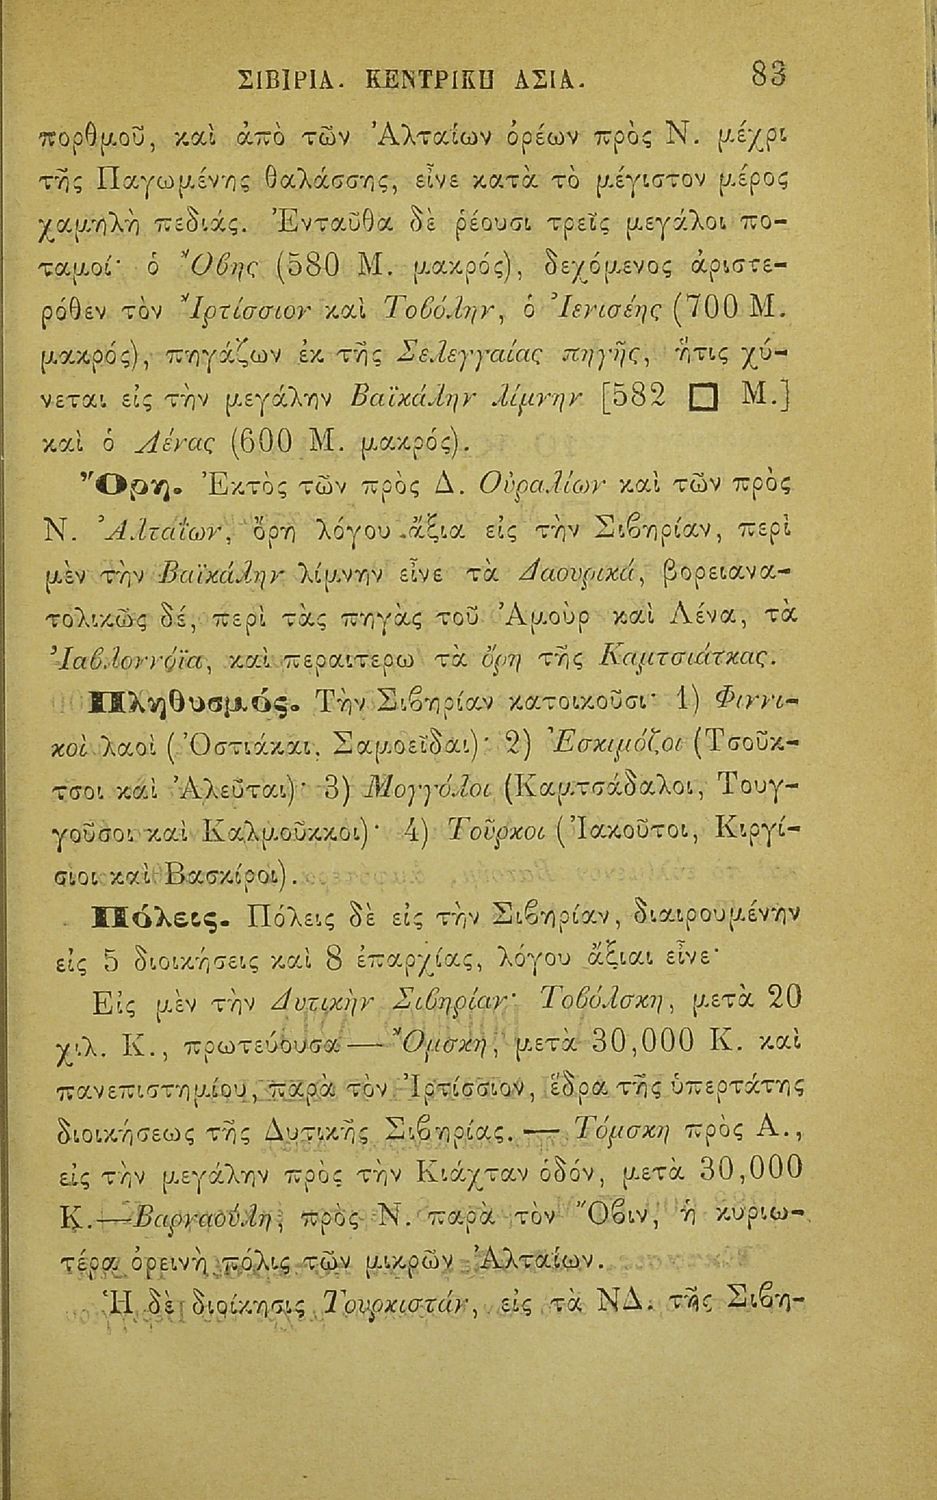 ΣΙΒΙΡΙΑ. ΚΕΝΤΡΙΚΗ ΑΣΙΑ. 83
πορθμοῦ, καὶ ἀπὸ τῶν Ἀλταίων ὀρέων πρὸς Ν. μέχρι
τῆς Παγωμένης θαλάσσης, εἶνε κατὰ τὸ μέγιστον μέρος
χαμηλὴ πεδιάς. Ἐνταῦθα δὲ ῥέουσι τρεῖς μεγάλοι πο-
ταμοί· ὁ Ὄβης (580 Μ. μακρός), δεχόμενος ἀριστε-
ρόθεν τὸν Ἴρτίσσιον καὶ Τοβόλην, ὁ Ἰενισέης (700 Μ.
μακρός), πηγάζων ἐκ τῆς Σελεγγαίας πηγῆς, ἥτις χύ-
νεται εἰς τὴν μεγάλην Βαϊκάλην λίμνην [582 □ Μ.]
καὶ ὁ Λένας (600 Μ. μακρός).
Ὄρη. Ἐκτὸς τῶν πρὸς Δ. Οὐραλίων καὶ τῶν πρὸς
Ν. Ἀλταΐων, ὄρη λόγου ἄξια εἰς τὴν Σιβηρίαν, περὶ
μὲν τὴν Βαϊκάλην λίμνην εἶνε τὰ Δαουρικά, βορειανα-
τολικῶς δέ, περὶ τὰς πηγὰς τοῦ Ἀμοὺρ καὶ Λένα, τὰ
Ἰαβλοννόϊα, καὶ περαιτέρω τὰ ὄρη τῆς Καμτσιάτκας.
Πληθυσμός. Τὴν Σιβηρίαν κατοικοῦσι· 1) Φιννι-
κοὶ λαοὶ (Ὀστιάκαι, Σαμοεῖδαι)· 2) Ἐσκιμόζοι (Τσοῦκ-
τσοι καὶ Ἀλεῦται)· 3) Μογγόλοι (Καμτσάδαλοι, Τουγ-
γοῦσοι καὶ Καλμοῦκκοι)· 4) Τοῦρκοι (Ἰακοῦτοι, Κιργί-
σιοι καὶ Βασκίροι).
Πόλεις. Πόλεις δὲ εἰς τὴν Σιβηρίαν, διαιρουμένην
εἰς 5 διοικήσεις καὶ 8 ἐπαρχίας, λόγου ἄξιαι εἶνε·
Εἰς μὲν τὴν Δυτικὴν Σιβηρίαν· Τοβόλσκη, μετὰ 20
χιλ. Κ., πρωτεύουσα — Ὄμσκη, μετὰ 30,000 Κ. καὶ
πανεπιστημίου, παρὰ τὸν Ἰρτίσσιον, ἕδρα τῆς ὑπερτάτης
διοικήσεως τῆς Δυτικῆς Σιβηρίας. — Τόμσκη πρὸς Α.,
εἰς τὴν μεγάλην πρὸς τὴν Κιάχταν ὁδόν, μετὰ 30,000
Κ.—Βαρναούλη, πρὸς Ν. παρὰ τὸν Ὄβιν, ἡ κυριω-
τέρα ὀρεινὴ πόλις τῶν μικρῶν Ἀλταίων.
Ἡ δὲ διοίκησις Τουρκιστάν, εἰς τὰ ΝΔ. τῆς Σιβη-